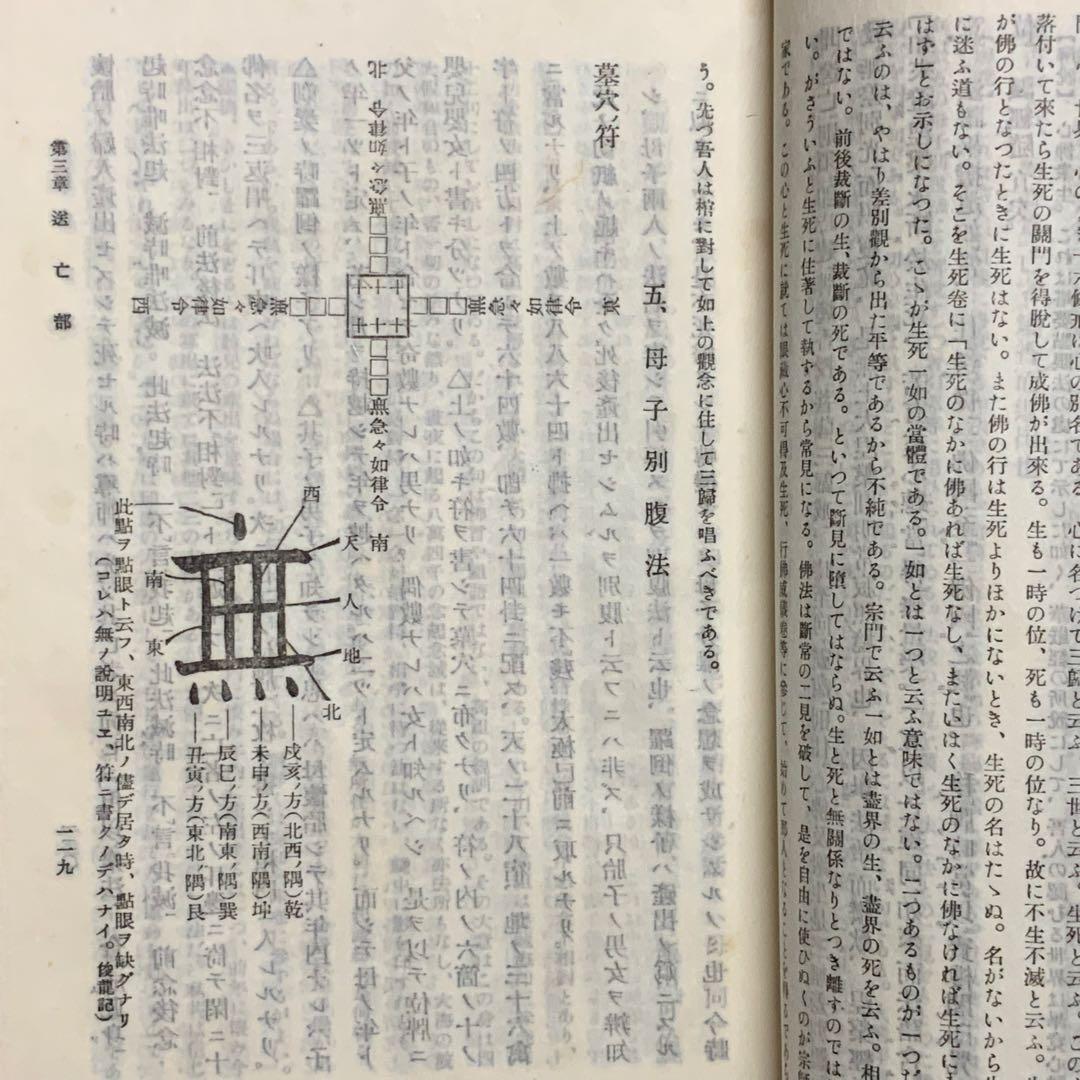 心に名づけて三歸と云ふ。三世と云ふ。生死と云ふ。この
落付いて來たら生死の關門を得脫して成佛が出來る。生も一時の位、死も一時の位なり。故に不生不滅と云ふ。
が佛の行となつたときに生死はない。また佛の行は生死よりほかにないとき、生死の名はたゝぬ。名がないから
に迷ふ道もない。そこを生死卷に「生死のなかに佛あれば生死なし、またいはく生死のなかに佛なければ生死に
はず」とお示しになつた。こゝが生死一如の當體である。一如とは一つと云ふ意味ではない。二つあるものが一つだ
云ふのは、やはり差別觀から出た平等であるから不純である。宗門で云ふ一如とは盡界の生、盡界の死を云ふ。相
ではない。前後裁斷の生、裁斷の死である。といつて斷見に墮してはならぬ。生と死と無關係なりとつき離すのでは
い。がさういふと生死に住著して執するから常見になる。佛法は斷常の二見を破して、是を自由に使ひぬくのが宗師
家である。この心と生死に就ては眼藏心不可得及生死、行佛威儀卷等に參じて、始めて
う。先づ吾人は棺に對して如上の觀念に住して三歸を唱ふべきである。
五、母子別腹法
墓穴ノ符
東 令律如々急㷠□□□
南 □□□㷠急々如律令
西 令律如々急㷠□□□
北 令律如々急㷠□□□
西
天
人
地
北
南
東
戌亥ノ方(北西ノ隅)乾
未申ノ方(西南ノ隅)坤
辰巳ノ方(南東ノ隅)巽
丑寅ノ方(東北ノ隅)艮
此點ヲ點眼ト云フ、東西南北ノ儘デ居タ時、點眼ヲ缺グナリ
(コレハ無ノ說明ユエ、符ニ書クノデハナイ。俊龍記)
第三章 送亡部
一二九